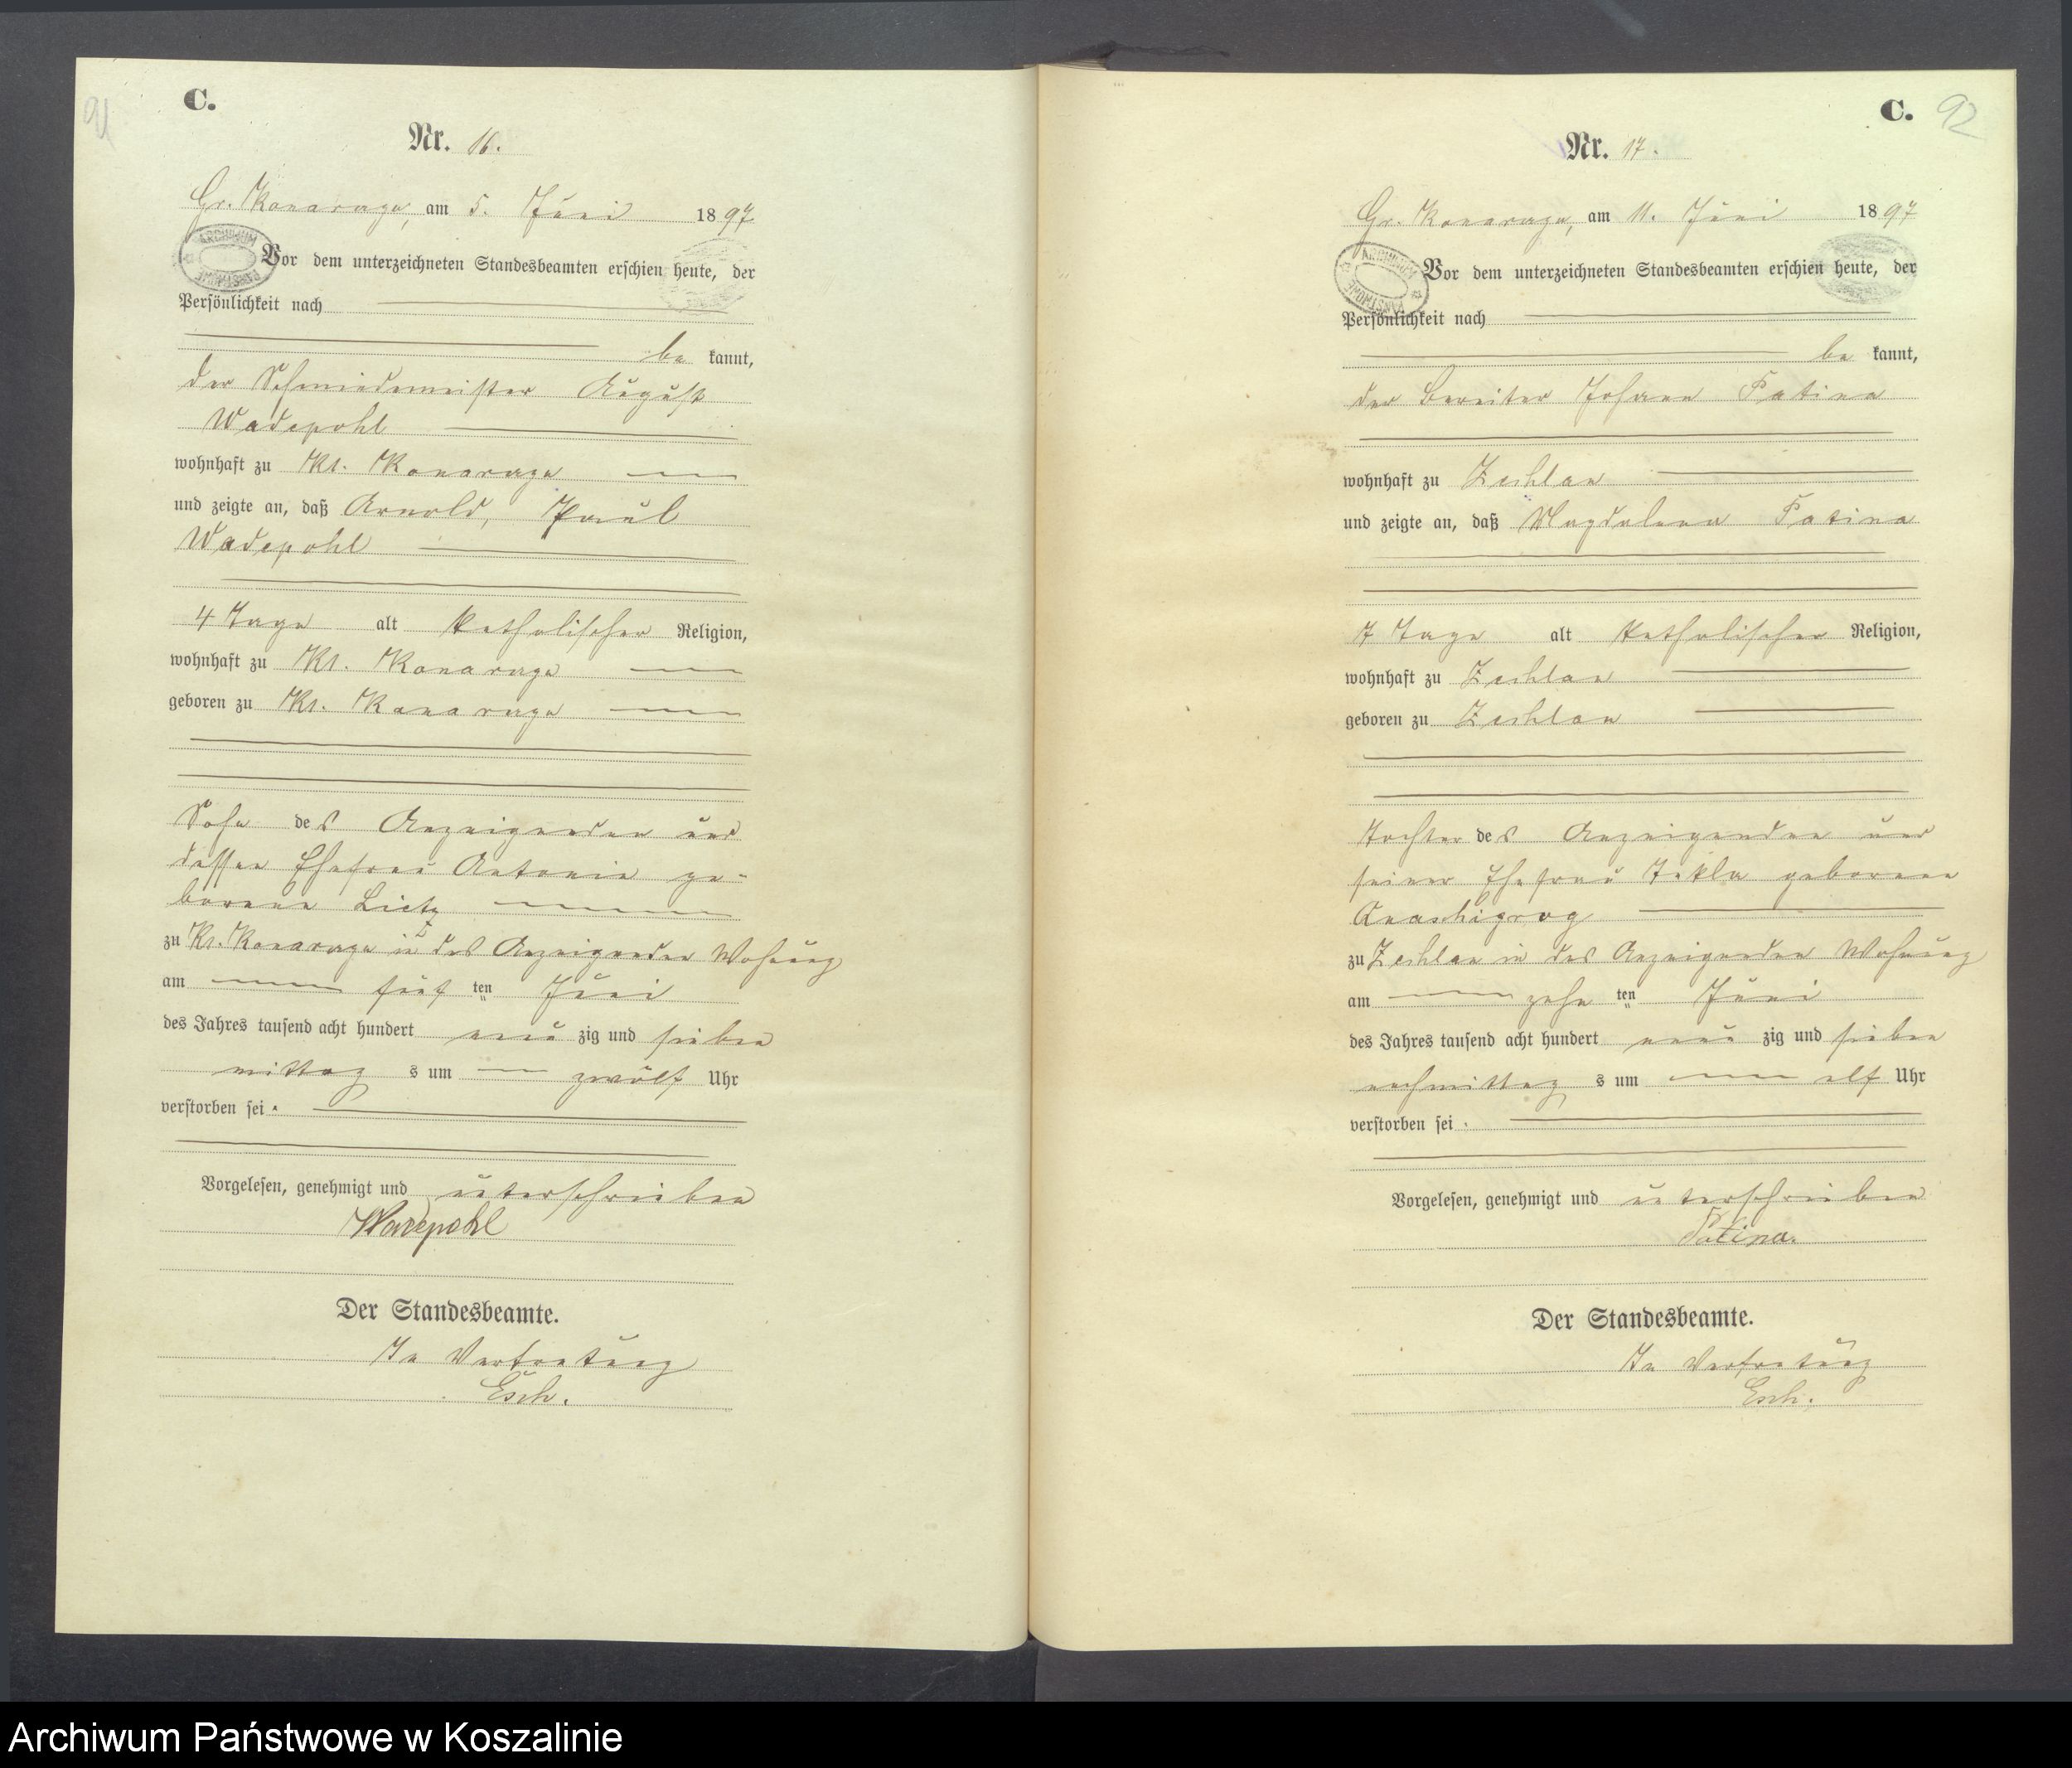 91
C.
Nr. 16.
Gr. Konarczyn, am 5. Juni 1897
ARCHIWUM
Vor dem unterzeichneten Standesbeamten erschien heute, der
Persönlichkeit nach
be kannt,
der Schmiedemeister August
Wadepohl
wohnhaft zu Kl. Konarczyn
und zeigte an, daß Arnold, Paul
Wadepohl
4 Tage alt katholischer Religion,
wohnhaft zu Kl. Konarczyn
geboren zu Kl. Konarczyn
Sohn des Anzeigenden und
dessen Ehefrau Antonie ge-
borene Lietz
zu Kl. Konarczyn in des Anzeigenden Wohnung
am fünf ten Juni
des Jahres tausend acht hundert neun zig und sieben
mittag s um zwölf Uhr
verstorben sei.
Vorgelesen, genehmigt und unterschrieben
Wadepohl
Der Standesbeamte.
In Vertretung
Esch.
C. 92
Nr. 17.
Gr. Konarczyn, am 11. Juni 1897
ARCHIWUM
Vor dem unterzeichneten Standesbeamten erschien heute, der
Persönlichkeit nach
be kannt,
der Bereiter Johann Fatina
wohnhaft zu Zechlau
und zeigte an, daß Magdalena Fatina
7 Tage alt katholischer Religion,
wohnhaft zu Zechlau
geboren zu Zechlau
Tochter des Anzeigenden und
seiner Ehefrau Tekla geborene
zu Zechlau in des Anzeigenden Wohnung
am zehn ten Juni
des Jahres tausend acht hundert neun zig und sieben
nachmittag s um elf Uhr
verstorben sei.
Vorgelesen, genehmigt und unterschrieben
Fatina.
Der Standesbeamte.
In Vertretung
Esch.
Archiwum Państwowe w Koszalinie